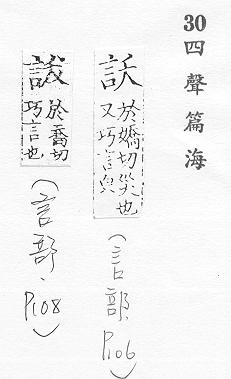 30四聲篇海
訞
於嬌切災也
又巧言皃
(言部,P106)
於喬切
巧言也
(言部,P108)